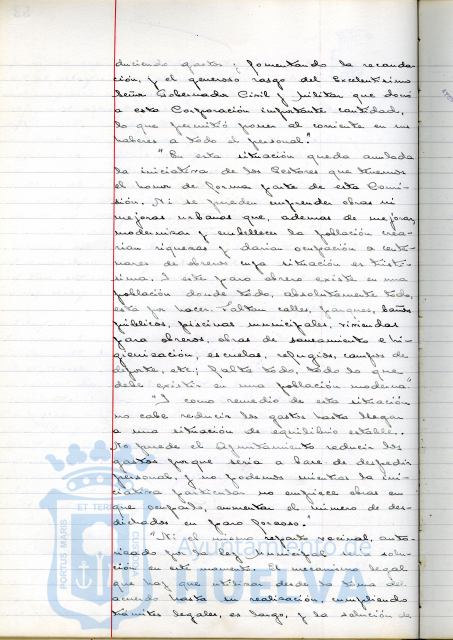 duciendo gastos; fomentando la recauda-
ción, y el generoso rasgo del Excelentísimo
Señor Gobernador Civil y Militar que donó
a esta Corporación importante cantidad,
lo que permitió poner al corriente en sus
haberes a todo el personal."
"En esta situación queda anulada
la iniciativa de los Gestores que tenemos
el honor de formar parte de esta Comi-
sión. Ni se pueden emprender obras ni
mejoras urbanas que, ademas de mejorar,
modernizar y embellecer la población crea-
rian riquezas y darian ocupación a cente-
nares de obreros cuya situación es tristí-
sima. I este paro obrero existe en una
población donde todo, absolutamente todo,
está por hacer. Faltan calles, parques, baños
públicos, piscinas municipales, viviendas
para obreros, obras de saneamiento e hi-
gienización, escuelas, refugios, campos de
deporte, etc; falta todo, todo lo que
debe existir en una población moderna."
"I como remedio de esta situación
no cabe reducir los gastos hasta llegar
a una situación de equilibrio estable.
No puede el Ayuntamiento reducir los
gastos porque seria a base de despedir
personal, y no podemos mientras la ini-
ciativa particular no empiece obras en
que ocuparlo, aumentar el número de des-
dichados en paro forzoso."
"Ni el mismo reparto vecinal, auto-
rizado por la ley Municipal es solu-
ción en este momento. El mecanismo legal
que hay que utilizar desde la toma del
acuerdo hasta su realización, cumpliendo
trámites legales, es largo, y la solución de
PORTUS MARIS
ET TERRE
CUSTODIA
Ayuntamiento de
HUELVA